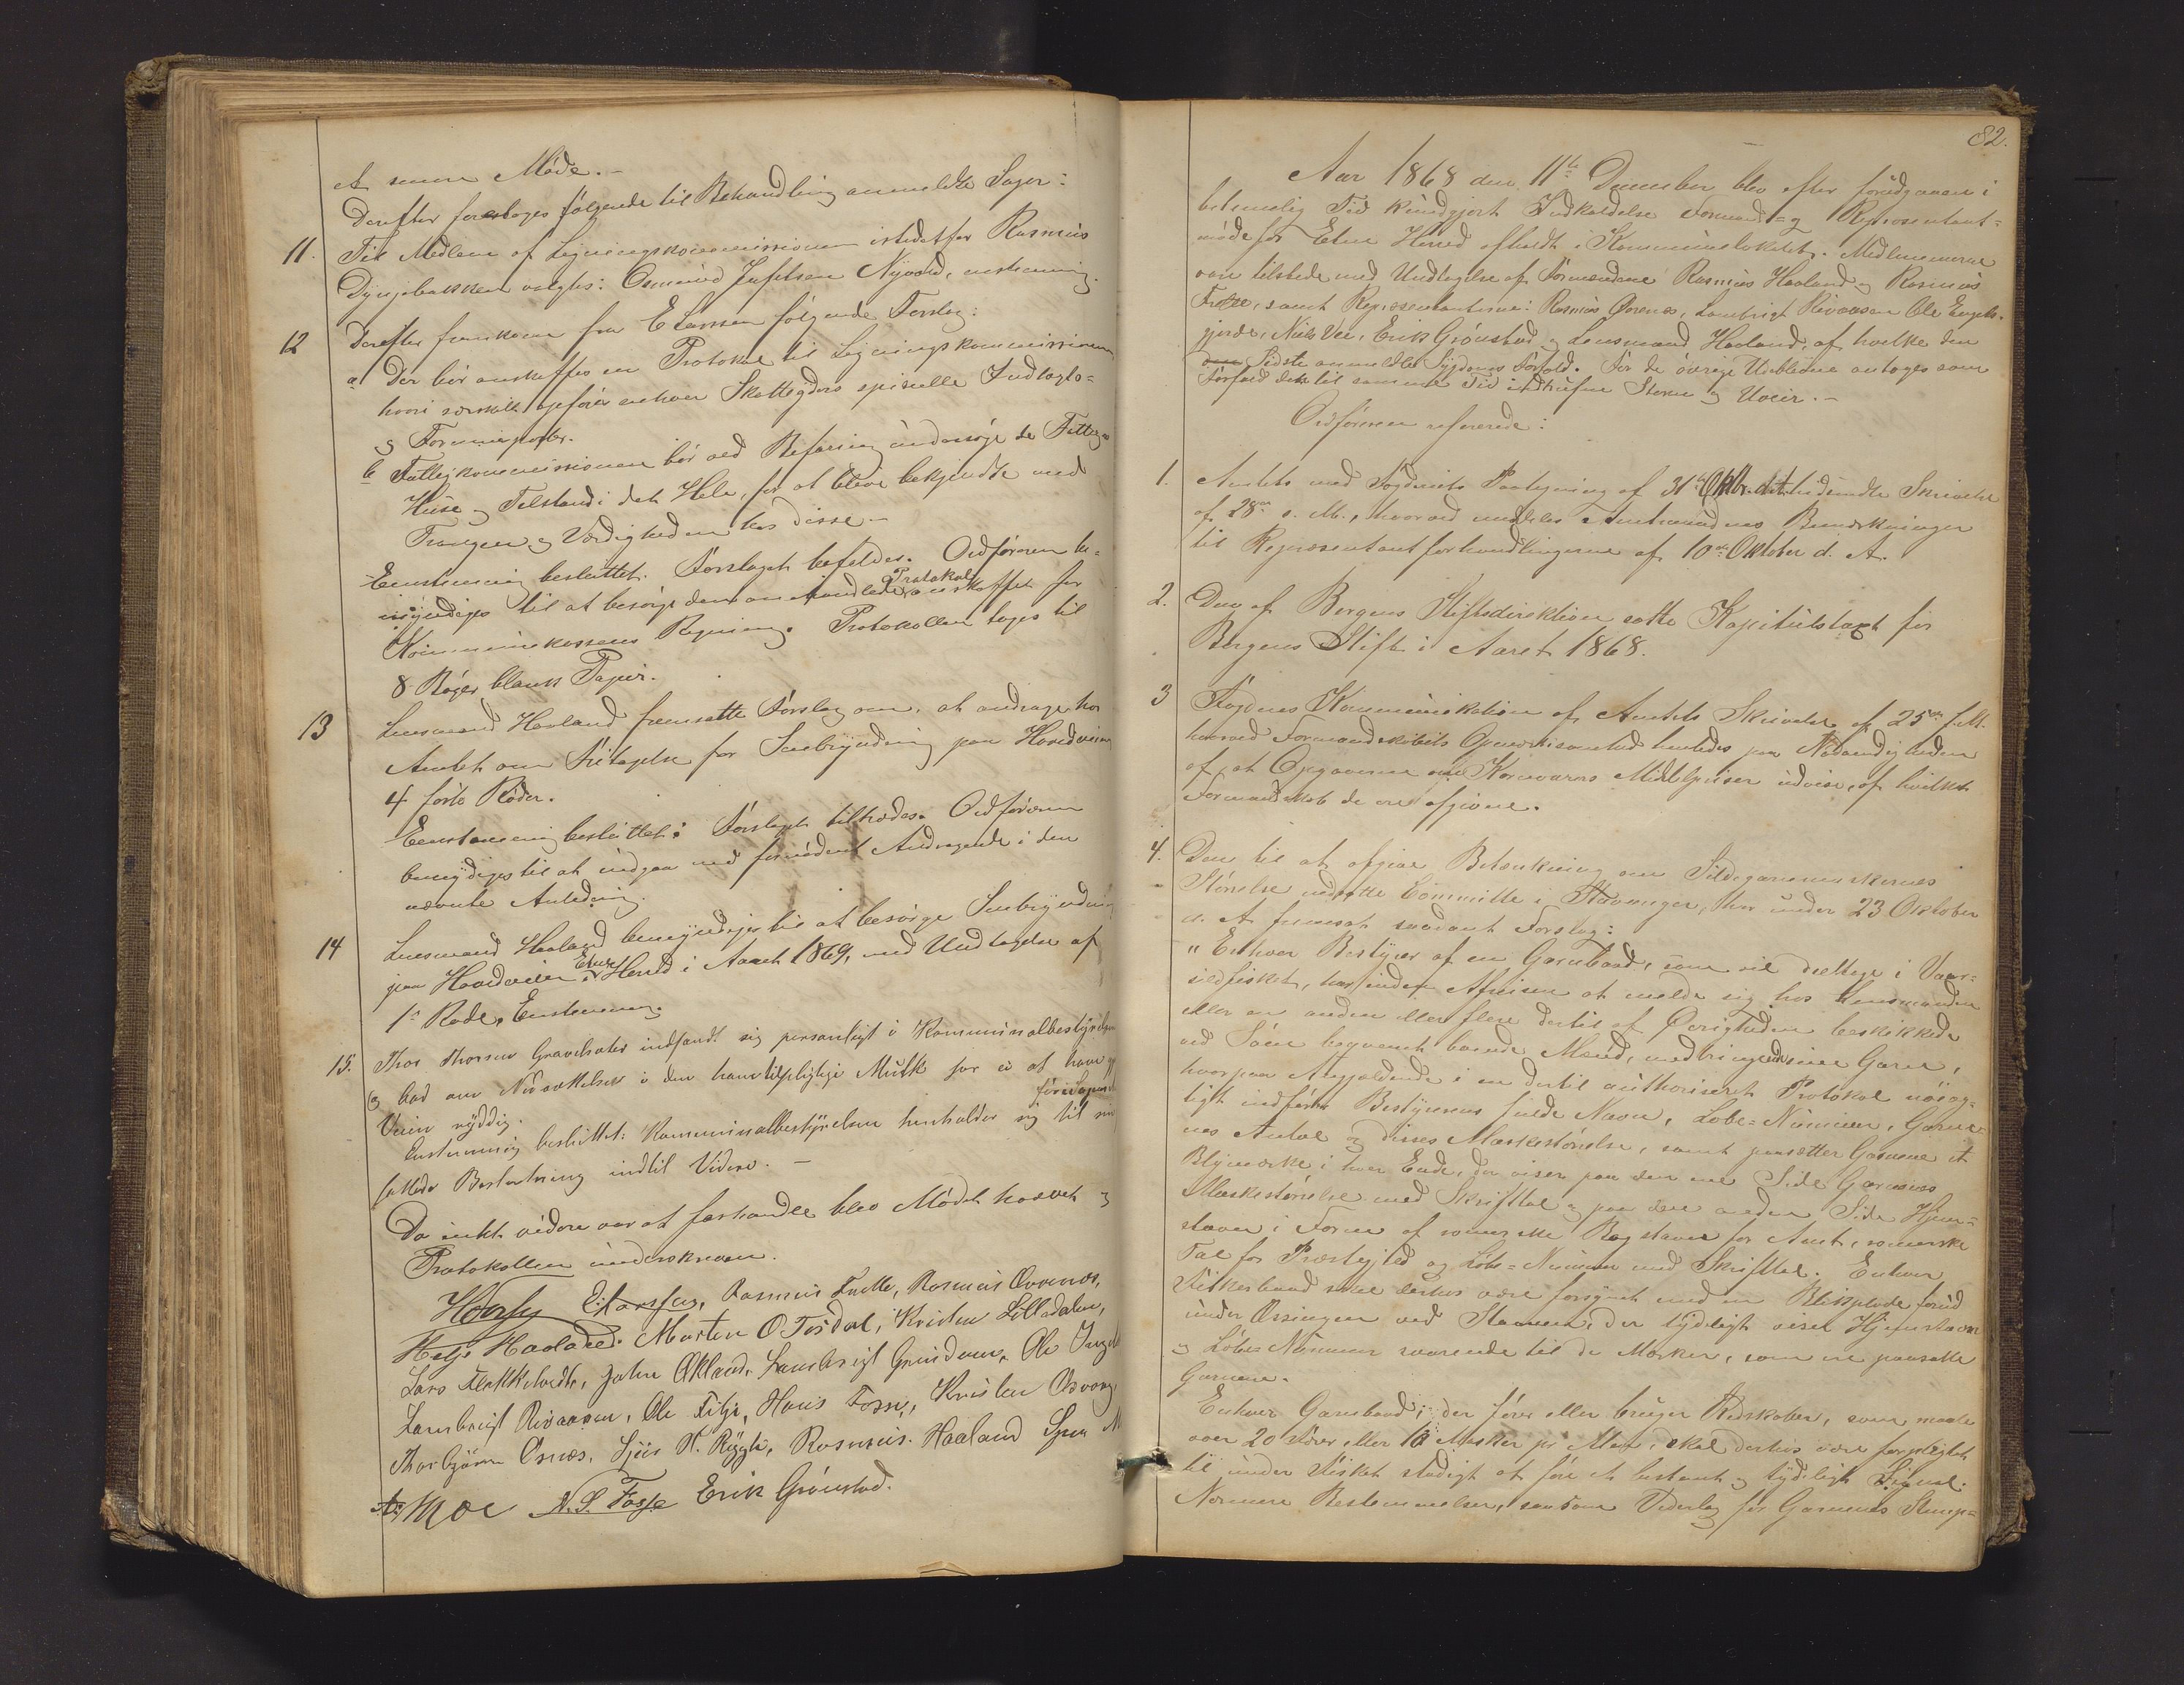 et senere Møde.-
Derefter foretoges følgende til Behandling anmeldte Sager:
11. Til Medlem af Ligningskommissionen istedetfor Rasmus
Dyngebakken valgtes: Osmund Nyvold, enstemmig.
12 Derefter fremkom fra E Larsen følgende Forslag:
a Der bør anskaffes en Protokol til Ligningskommissionen
hvori særskilt opføres enhver Skatteyders specielle Indtægts-
og Formueposter.
b Fattigkommissionen bør ved Befaring undersøge de Fattiges
Huse og Tilstand i det Hele, for at blive bekjendt med
Trangen og Værdigheden hos disse.-
Eenstemmig besluttet: Forslaget bifaldes. Ordføreren be-
myndiges til at besørge den omhandlede Protokol anskaffet for
Kommunekassens Regning. Protokollen tages til
8 Bøger blank Papir.
13 Lensmand Haaland fremsatte Forslag om, at andrage hos
Amtet om Fritagelse for Snebrydning paa Hovedveien
4 første Roder.
Eenstemmig besluttet: Forslaget tiltrædes. Ordføreren
bemyndiges til at indgaa med fornødent Andragende i den
nævnte Anledning.
14 Lensmand Haaland bemyndiges til at besørge Snebrydning
paa Hovedveien i Etne Herred i Aaret 1869, med Undtagelse af
1ste Rode, Enstemmig.
15. Thor Thorsen indfandt sig personligt i Kommunalbestyrelsen
og bad om Nedsættelse i den ham tilpligtige Mulkt for ei at have
Veien ryddig.
Enstemmig besluttet: Kommunalbestyrelsen henholder sig til sin forud
fattede Beslutning indtil Videre.-
Da intet videre var at forhandle blev Mødet hævet og
Protokollen underskreven.
E. Larssen, Rasmus Frette, Rasmus Ørenæs,
Helje Haaland. Morten O Tesdal, Kristen Lilledalen,
Lars Flakketvedt, John Økland, Lambrigt Grindem, Ole
Lambrigt Rivaasen, Ole Fitje, Hans Fosse, Kristen Osvaag
Thorbjørn Osnæs, Sjur H. Rygh, Rasmus Haaland
Moe N. S. Fosse Erik Grønstad.
82.
Aar 1868 den 11te December blev efter forudgaaen i
betimelig Tid kundgjort Indkaldelse Formands- og Repræsentant-
møde for Etne Herred afholdt i Kommunelokalet. Medlemmerne
vare tilstede med Undtagelse af Formændene Rasmus Haaland og Rasmus
Frette, samt Repræsentanterne: Rasmus Ørenes, Lambrigt Rivaasen Ole Engels-
gjerde, Niels Vee, Erik Grønstad og Lensmand Haaland, af hvilke den
Sidste anmeldte Sygdoms Forfald. For de øvrige Udeblevne antoges som
Forfald den til samme Tid indtrufne Storm og Uveir.-
Ordføreren refererede:
1. Amtets med Fogderiets Paategning af 31te Oktbr. hidsendte Skrivelse
af 28de s. M., hvorved meddeles Amtmandens Bemærkninger
til Repræsentantforhandlingerne af 10de Oktober d. A.
2. Den af Bergens Stiftsdirektion satte Kapitelstaxt for
Bergens Stift i Aaret 1868.
3 Fogdens Kommunikation af Amtets Skrivelse af 25de f. M.
hvorved Formandskabets Opmærksomhed henledes paa Nødvendigheden
af, at Opgaverne over Kornvares Middelpriser udvise, af hvilket
Formandskab de ere afgivne.
4. Den til at afgive Betænkning om Sildegarnsmaskernes
Størrelse nedsatte Committe i Stavanger, har under 23 Oktober
d. A fremsat saadant Forslag:
"Enhver Bestyrer af en Garnbaad, som vil deeltage i Vaar-
sildfisket, har inden Afreisen at melde sig hos Lensmanden
eller en anden eller flere dertil af Øvrigheden beskikkede
ved Søen beqvemt boende Mænd, medbringende sine Garn,
hvorpaa Angjældende i en dertil authoriseret Protokol nøiag-
tigt indfører Bestyrerens fulde Navn, Løbe-Nummer, Garne-
nes Antal og disses Maskestørrelse, samt paasætter Garnene et
Blymærke i hver Ende, der viser paa den ene Side Garnenes
Maskestørrelse med Skrifttal og paa den anden Side Hjem-
stavn i Form af romerske Bogstaver for Amt, romerske
Tal for Præstegjeld og Løbe-Nummer med Skrifttal. Enhver
Fiskerbaad skal derhos være forsynet med en Blikplade forud
under Øsningen ved Stavnen, der tydeligt viser Hjemstavn
og Løbe-Nummer svarende til de Mærker, som ere paasatte
Garnene.
Enhver Garnbaad, der fører eller bruger Redskaber, som maale
over 20 Omfar eller 10 Masker pr Alen, skal derhos være forpligtet
til under Fisket stadigt at føre et bestemt og tydeligt Signal.
Nærmere Bestemmelser, saasom Vederlag for Garnenes Stemp-